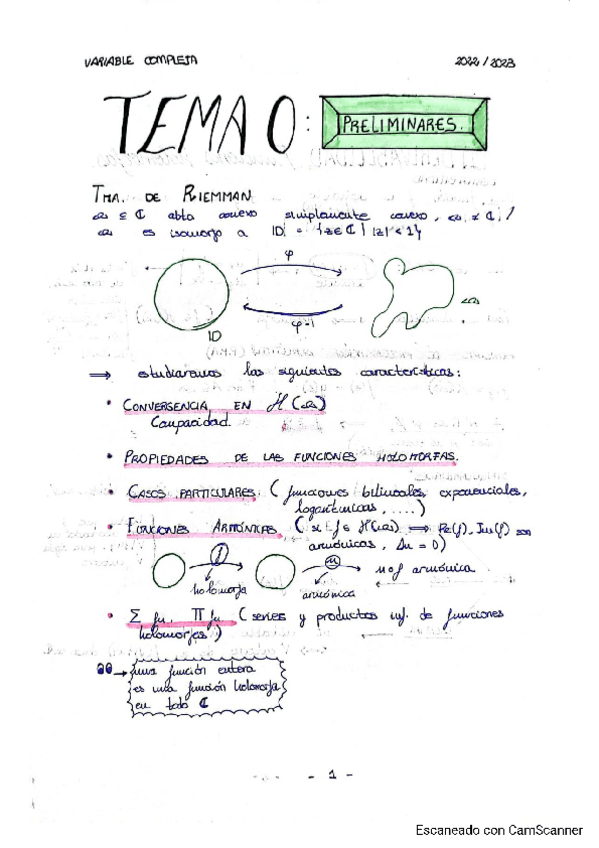 VARIABLE COMPLETA 2022/2023
TEMA 0: PRELIMINARES.
TMA. DE RIEMMAN
Ω ⊆ ℂ abto conexo simplemente conexo, Ω ≠ ℂ /
Ω es isomorfo a ID = {z∈ℂ | |z| < 1}
φ
Ω
ID
φ-1
⟹ estudiaremos las siguientes características:
• CONVERGENCIA EN H(Ω)
Compacidad.
• PROPIEDADES DE LAS FUNCIONES HOLOMORFAS.
• CASOS PARTICULARES. (funciones bilineales, exponenciales,
logarítmicas, ....)
• FUNCIONES ARMÓNICAS. (si f ∈ H(Ω) ⟹ Re(f), Im(f) son
armónicas, Δu = 0)
f u
u∘f armónica
holomorfa armónica
• Σ fn, Π fn (series y productos inf. de funciones
holomorfas)
una función entera
es una función holomorfa
en todo ℂ
- 1 -
Escaneado con CamScanner